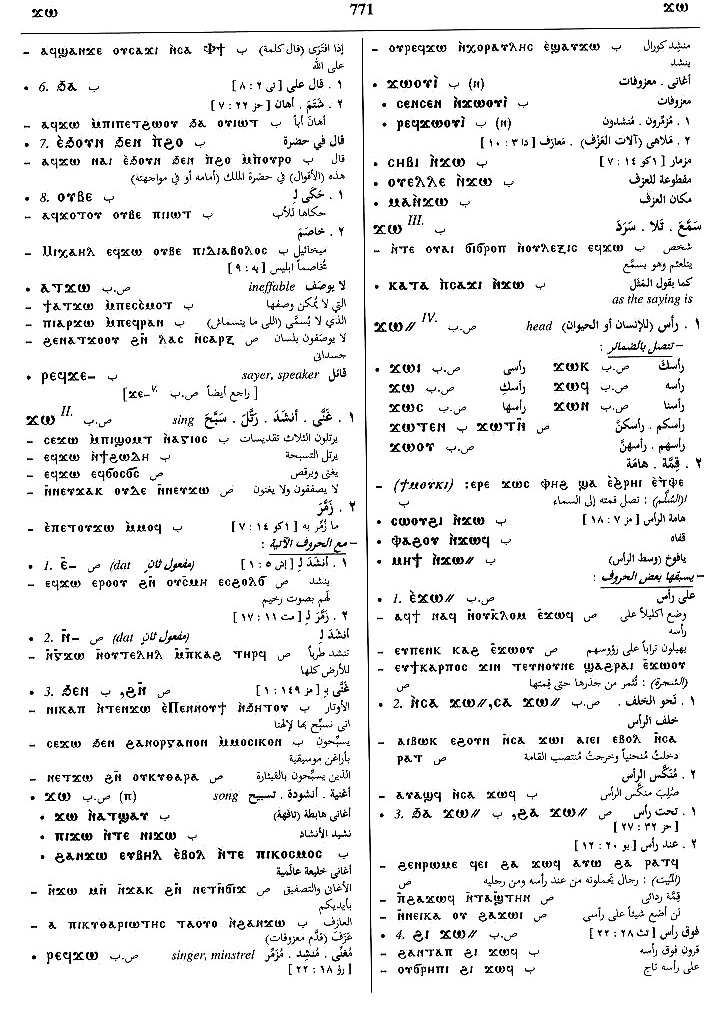 ϫⲱ 771 ϫⲱ
– ⲁϥϣⲁⲛϫⲉ ⲟⲩⲥⲁϫⲓ ⲛ̀ⲥⲁ Ⲫϯ ب إذا افترى (قال كلمة)
على الله
• 6. ϧⲁ ب ١ . قال على [تى ٢ : ٨]
٢ . شتم . أهان [حز ٢٢ : ٧]
– ⲁϥϫⲱ ⲙ̀ⲡⲓⲡⲉⲧϩⲱⲟⲩ ϧⲁ ⲟⲩⲓⲱⲧ ب أهان أباً
• 7. ⲉ̀ϧⲟⲩⲛ ϧⲉⲛ ⲡ̀ϩⲟ ب قال في حضرة
– ⲁϥϫⲱ ⲛⲁⲓ ⲉ̀ϧⲟⲩⲛ ϧⲉⲛ ⲡ̀ϩⲟ ⲙ̀ⲡⲟⲩⲣⲟ ب قال
هذه (الأقوال) في حضرة الملك (أمامه أو في مواجهته)
• 8. ⲟⲩⲃⲉ ب ١ . حكى لـِ
– ⲁϥϫⲟⲧⲟⲩ ⲟⲩⲃⲉ ⲡⲓⲓⲱⲧ ب حكاها للأب
٢ . خاصم
– Ⲙⲓⲭⲁⲏⲗ ⲉϥϫⲱ ⲟⲩⲃⲉ ⲡⲓⲇⲓⲁⲃⲟⲗⲟⲥ ب ميخائيل
مخاصماً ابليس [يه : ٩]
• ⲁⲧϫⲱ ص.ب ineffable لا يوصف
– ϯⲁⲧϫⲱ ⲙ̀ⲡⲉⲥⲥ̀ⲙⲟⲧ ب التي لا يُمكن وصفها
– ⲡⲓⲁⲣϫⲱ ⲙ̀ⲡⲉϥⲣⲁⲛ ب الذي لا يُسمَّى (اللى ما يتسماش)
– ϩⲉⲛⲁⲧϫⲟⲟⲩ ϩⲛ̄ ⲗⲁⲥ ⲛ̀ⲥⲁⲣⲝ ص لا يوصفون بلسان
جسداني
• ⲣⲉϥϫⲉ– ب sayer, speaker قائل
[راجع أيضاً ص.ب ϫⲉ– V.]
ϫⲱ II. ص.ب sing ١ . غَنَّى . أنشد . رتَّل . سبَّح
– ⲥⲉϫⲱ ⲙ̀ⲡⲓϣⲟⲙⲧ ⲛ̀ⲁⲅⲓⲟⲥ ب يرتلون الثلاث تقديسات
– ⲉϥϫⲱ ⲛ̀ϯϩⲱⲇⲏ ب يرتل التسبحة
– ⲉϥϫⲱ ⲉϥϭⲟⲥϭⲥ ص يغنى ويرقص
– ⲛ̄ⲛⲉⲩϫⲁⲕ ⲟⲩⲇⲉ ⲛ̄ⲛⲉⲩϫⲱ ص لا يصفقون ولا يغنون
٢ . زمَّر
– ⲉ̀ⲡⲉⲧⲟⲩϫⲱ ⲙ̀ⲙⲟϥ ب ما زُمِّر به [١كو ١٤ : ٧]
– مع الحروف الآتية :
• 1. ⲉ̄– ص (dat مفعول ثانٍ) ١ . أنشد لـِ [إش ٥ : ١]
– ⲉϥϫⲱ ⲉⲣⲟⲟⲩ ϩⲛ̄ ⲟⲩⲥⲙⲏ ⲉⲥϩⲟⲗϭ ص ينشد
لهم بصوت رخيم
٢ . زمَّر لـِ [مت ١١ : ١٧]
• 2. ⲛ̄– ص (dat مفعول ثانٍ) أنشد لـِ
– ⲛ̄ⲅϫⲱ ⲛ̄ⲟⲩⲧⲉⲗⲏⲗ ⲙ̄ⲡⲕⲁϩ ⲧⲏⲣϥ ص تنشد طرباً
للأرض كلها
• 3. ϧⲉⲛ ب, ϩⲛ̄ ص غَنَّى بـِ [مز ١٤٩ : ١]
– ⲛⲓⲕⲁⲡ ⲛ̀ⲧⲉⲛϫⲱ ⲉ̀Ⲡⲉⲛⲛⲟⲩϯ ⲛ̀ϧⲏⲧⲟⲩ ب الأوتار
التي نسبِّح بها لإلهنا
– ⲥⲉϫⲱ ϧⲉⲛ ϩⲁⲛⲟⲣⲅⲁⲛⲟⲛ ⲙ̀ⲙⲟⲩⲥⲓⲕⲟⲛ ب يسبِّحون
بأراغن موسيقية
– ⲛⲉⲧϫⲱ ϩⲛ̄ ⲟⲩⲕⲩⲑⲁⲣⲁ ص الذين يسبِّحون بالقيثارة
• ϫⲱ (n) ص.ب song أغنية . أنشودة . تسبيح
• ϫⲱ ⲛ̀ⲁⲧϣⲁⲩ ب أغانى هابطة (تافهة)
• ⲡⲓϫⲱ ⲛ̀ⲧⲉ ⲛⲓϫⲱ ب نشيد الأنشاد
• ϩⲁⲛϫⲱ ⲉⲩⲃⲏⲗ ⲉ̀ⲃⲟⲗ ⲛ̀ⲧⲉ ⲡⲓⲕⲟⲥⲙⲟⲥ ب
أغانى خليعة عالمية
– ⲛ̄ϫⲱ ⲙⲛ̄ ⲛ̄ϫⲁⲕ ϩⲛ̄ ⲛⲉⲧⲛ̄ϭⲓϫ ص الأغانى والتصفيق
بأيديكم
– ⲁ ⲡⲓⲕⲩⲑⲁⲣⲓⲱⲧⲏⲥ ⲧⲁⲟⲩⲟ ⲛ̀ϩⲁⲛϫⲱ ب العازف
عَزَفَ (قدَّم معزوفات)
• ⲣⲉϥϫⲱ ص.ب singer, minstrel مُغَنِّى . مُنشد . مُزَمِّر
[رؤ ١٨ : ٢٢]
– ⲟⲩⲣⲉϥϫⲱ ⲛ̀ⲭⲟⲣⲁⲩⲗⲏⲥ ⲉϣⲁϥϫⲱ ب منشد كورال
ينشد
• ϫⲱⲟⲩⲓ̀ ب (n) أغاني . معزوفات
• ⲥⲉⲛⲥⲉⲛ ⲛ̀ϫⲱⲟⲩⲓ̀ ب معزوفات
• ⲣⲉϥϫⲱⲟⲩⲓ̀ ب (n) ١ . مُزمِّرون . منشدون
٢ . ملاهى (آلات العزف) . معازف [دا ٣ : ١٠]
• ⲥⲏⲃⲓ ⲛ̀ϫⲱ ب مزمار [١كو ١٤ : ٧]
• ⲟⲩⲉⲗⲗⲉ ⲛ̀ϫⲱ ب مقطوعة للعزف
• ⲙⲁⲛ̀ϫⲱ ب مكان العزف
ϫⲱ III. ب سمَّع . تلا . سرد
– ⲛ̀ⲧⲉ ⲟⲩⲁⲓ ϭⲓϭⲣⲟⲡ ⲛ̀ⲟⲩⲗⲉⲝⲓⲥ ⲉϥϫⲱ ب شخص
يتلعثم وهو يسمِّع
• ⲕⲁⲧⲁ ⲡ̀ⲥⲁϫⲓ ⲛ̀ϫⲱ ب كما يقول المَثَل
as the saying is
ϫⲱ// IV. ص.ب head ١ . رأس (للإنسان أو الحيوان)
– تتصل بالضمائر :
• ϫⲱⲓ ص.ب رأسى ϫⲱⲕ ص.ب رأسكَ
ϫⲱ ص.ب رأسكِ ϫⲱϥ ص.ب رأسه
ϫⲱⲥ ص.ب رأسها ϫⲱⲛ ص.ب رأسنا
ϫⲱⲧⲉⲛ ب ϫⲱⲧⲛ̄ ص رأسكم . رأسكنَّ
ϫⲱⲟⲩ ص.ب رأسهم . رأسهنَّ
٢ . قِمَّة . هامة
– (ϯⲙⲟⲩⲕⲓ) :ⲉⲣⲉ ϫⲱⲥ ⲫⲏϩ ϣⲁ ⲉ̀ϩⲣⲏⲓ ⲉ̀ⲧⲫⲉ
ب (السُّلَّم) : تصل قمته إلى السماء
• ⲥⲱⲟⲩϩⲓ ⲛ̀ϫⲱ ب هامة الرأس [مز ٧ : ١٨]
• ⲫⲁϩⲟⲩ ⲛ̀ϫⲱϥ ب قفاه
• ⲙⲏϯ ⲛ̀ϫⲱ// ب يافوخ (وسط الرأس)
– يسبقها بعض الحروف :
• 1. ⲉ̀ϫⲱ// ص.ب على رأس
– ⲁϥϯ ⲛⲁϥ ⲛ̀ⲟⲩⲕⲗⲟⲙ ⲉ̄ϫⲱϥ ص وضع اكليلاً على
رأسه
– ⲉⲩⲡⲉⲛⲕ ⲕⲁϩ ⲉ̄ϫⲱⲟⲩ ص يهيلون تراباً على رؤوسهم
– ⲉⲩϯⲕⲁⲣⲡⲟⲥ ϫⲓⲛ ⲧⲉⲩⲛⲟⲩⲛⲉ ϣⲁϩⲣⲁⲓ ⲉ̄ϫⲱⲟⲩ
ص (الشجرة) : تُثمر من جذرها حتى قمتها
• 2. ⲛ̀ⲥⲁ ϫⲱ//,ⲥⲁ ϫⲱ// ص.ب ١ . نحو الخلف .
خلف الرأس
– ⲁⲓⲃⲱⲕ ⲉϩⲟⲩⲛ ⲛ̄ⲥⲁ ϫⲱⲓ ⲁⲓⲉⲓ ⲉⲃⲟⲗ ⲛ̄ⲥⲁ
ⲣⲁⲧ ص دخلتُ مُنحنياً وخرجتُ منتصب القامة
٢ . مُنكَّس الرأس
– ⲁⲩⲁϣϥ ⲛ̀ⲥⲁ ϫⲱϥ ب صُلِبَ منكَّس الرأس
• 3. ϧⲁ ϫⲱ// ب, ϩⲁ ϫⲱ// ص ١ . تحت رأس
[حز ٣٢ : ٢٧]
٢ . عند رأس [يو ٢٠ : ١٢]
– ϩⲉⲛⲣⲱⲙⲉ ϥⲉⲓ ϩⲁ ϫⲱϥ ⲁⲩⲱ ϩⲁ ⲣⲁⲧϥ
ص (الميت) : رجال يحملونه من عند رأسه ومن رجليه
– ⲡ̄ϩⲁϫⲱϥ ⲛ̄ⲧⲁϣⲧⲏⲛ ص قِمَّة ردائى
– ⲛ̄ⲛⲉⲓⲕⲁ ⲟⲩ ϩⲁϫⲱⲓ ص لن أضع شيئاً على رأسى
• 4. ϩⲓ ϫⲱ// ص.ب فوق رأس [تث ٢٨ : ٢٢]
– ϩⲁⲛⲧⲁⲡ ϩⲓ ϫⲱϥ ب قرون فوق رأسه
– ⲟⲩϭⲣⲏⲡⲓ ϩⲓ ϫⲱϥ ب على رأسه تاج